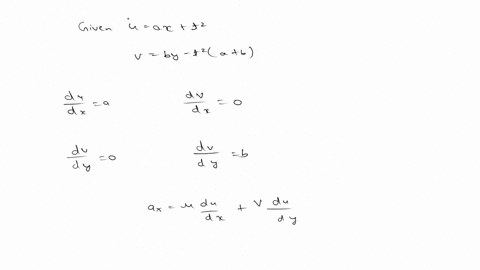 Given u = ax + t²
v = by - t²(a+b)
du/dx = a    dv/dx = 0
du/dy = 0    dv/dy = b
ax = u du/dx + v du/dy